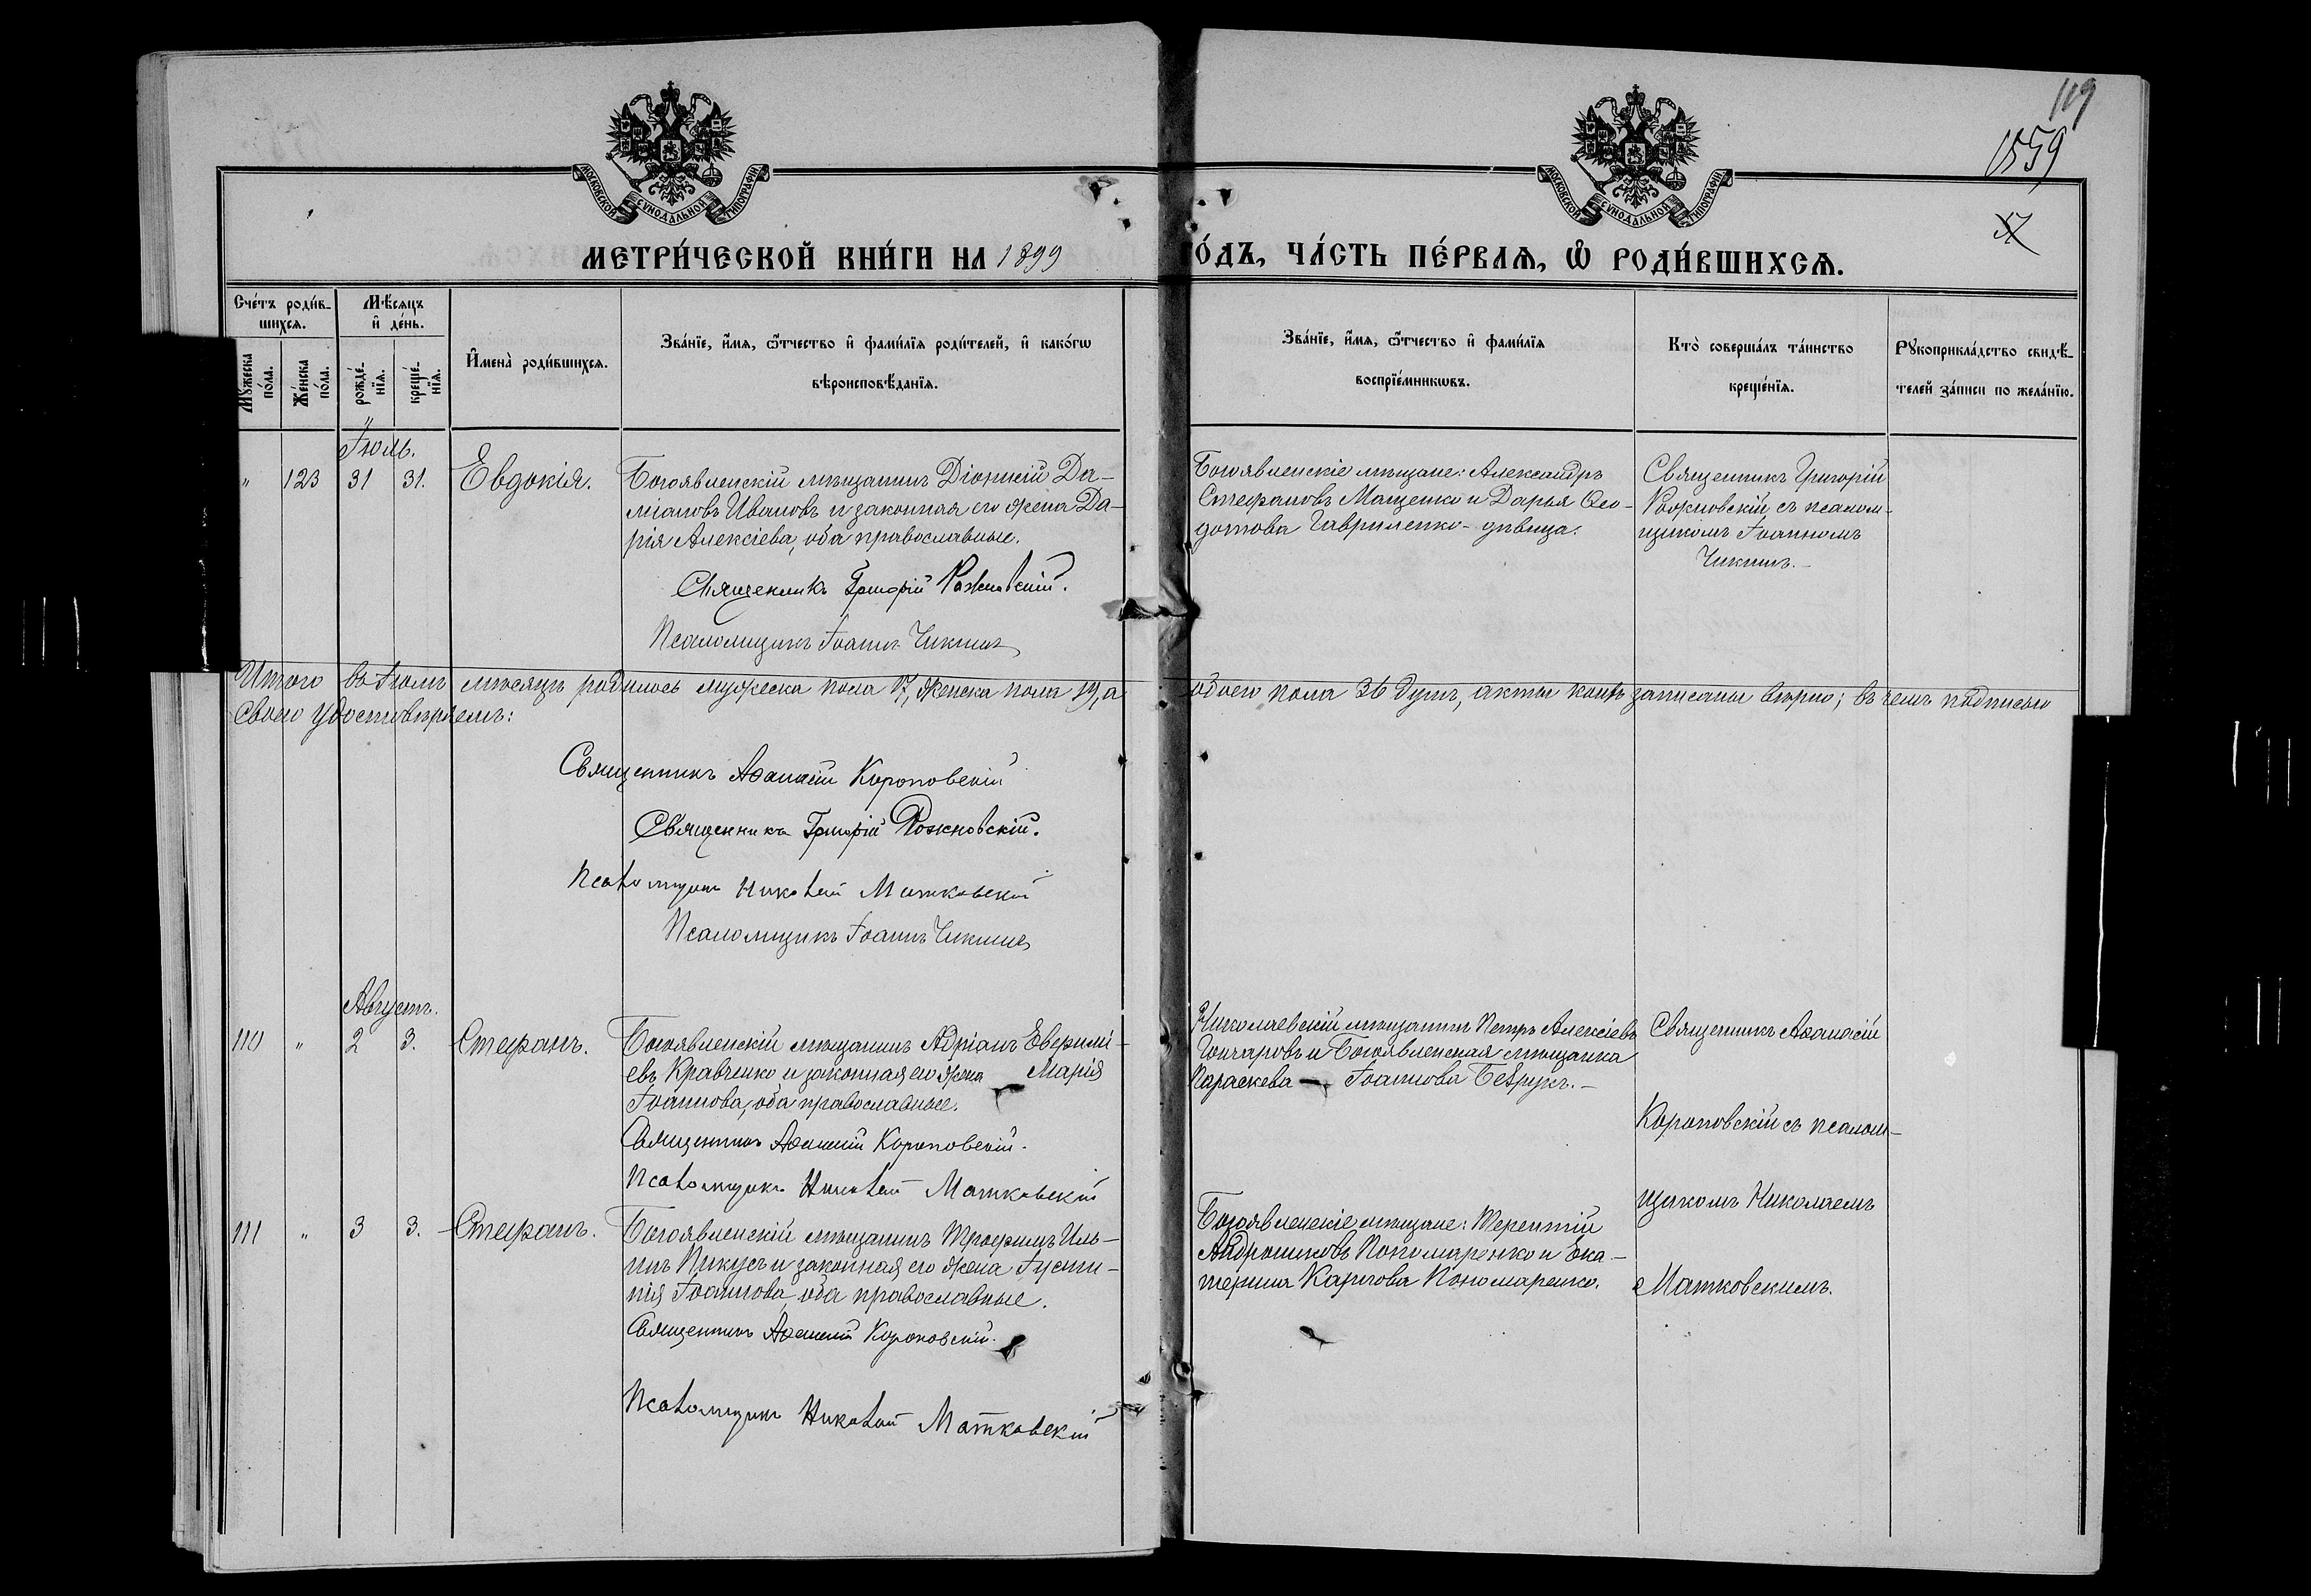 119
1559
МОСКОВСКОЙ СУНОДАЛЬНОЙ ТИПОГРАФІИ
МОСКОВСКОЙ СУНОДАЛЬНОЙ ТИПОГРАФІИ
МЕТРИ́ЧЕСКОЙ КНИ́ГИ НА 1899
О́ДЪ, ЧА́СТЬ ПЕ́РВАѦ, Ѡ҆ РОДИ́ВШИХСѦ.
Сче́тъ роди́в-
шихсѧ.
Мꙋ́жеска
по́ла.
Же́нска
по́ла.
Мѣ́сѧцъ
и҆ де́нь.
рожде́-
нїѧ.
креще́-
нїѧ.
И҆мена̀ роди́вшихсѧ.
Зва́нїе, и҆́мѧ, ѻ҆́тчество и҆ фами́лїѧ роди́телей, и҆ како́гѡ
вѣроисповѣ́данїѧ.
Зва́нїе, и҆́мѧ, ѻ҆́тчество и҆ фами́лїѧ
воспрїе́мникѡвъ.
Кто̀ соверша́лъ та́инство
креще́нїѧ.
Рꙋкоприкла́дство свидѣ́-
телей за́писи по жела́нїю.
Іюль.
" 123 31 31. Евдокія.
Богоявленскій мѣщанинъ Діонисій Да-
міановъ Ивановъ и законная его жена Да-
рія Алексіева, оба православные.
Священникъ Григорій Рожновскій.
Псаломщикъ Іоаннъ Чикинъ
Богоявленскіе мѣщане: Александръ
Стефановъ Мащенко и Дарья Ѳео-
дотова Гавриленко - дѣвица.
Священникъ Григорій
Рожновскій съ псалом-
щикомъ Іоанномъ
Чикинъ.-
Итого въ Іюлѣ мѣсяцѣ родилось мужеска пола 17, женска пола 19, а обоего пола 36 душъ, акты коихъ записаны вѣрно; въ чемъ подписью
своею удостовѣряемъ:
Священникъ Аѳанасій Короповскій
Священникъ Григорій Рожновскій.
Псаломщикъ Николай Матковскій
Псаломщикъ Іоаннъ Чикинъ
Августъ.
110 " 2 3. Стефанъ.
Богоявленскій мѣщанинъ Адріанъ Евѳимі-
евъ Кравченко и законная его жена Марія
Іоаннова, оба православные.
Священникъ Аѳанасій Короповскій.
Псаломщикъ Николай Матковскій
Николаевскій мѣщанинъ Петръ Алексіевъ
Гончаровъ и Богоявленская мѣщанка
Параскева Іоаннова
Священникъ Аѳанасій
Короповскій съ псалом-
щикомъ Николаемъ
Матковскимъ.
111 " 3 3. Стефанъ.
Богоявленскій мѣщанинъ Трофимъ Иль-
инъ Пикусъ и законная его жена Іусти-
нія Іоаннова, оба православные.
Священникъ Аѳанасій Короповскій.
Псаломщикъ Николай Матковскій
Богоявленскіе мѣщане: Терентій
Андрониковъ Пономаренко и Ека-
терина Карпова Пономаренко.